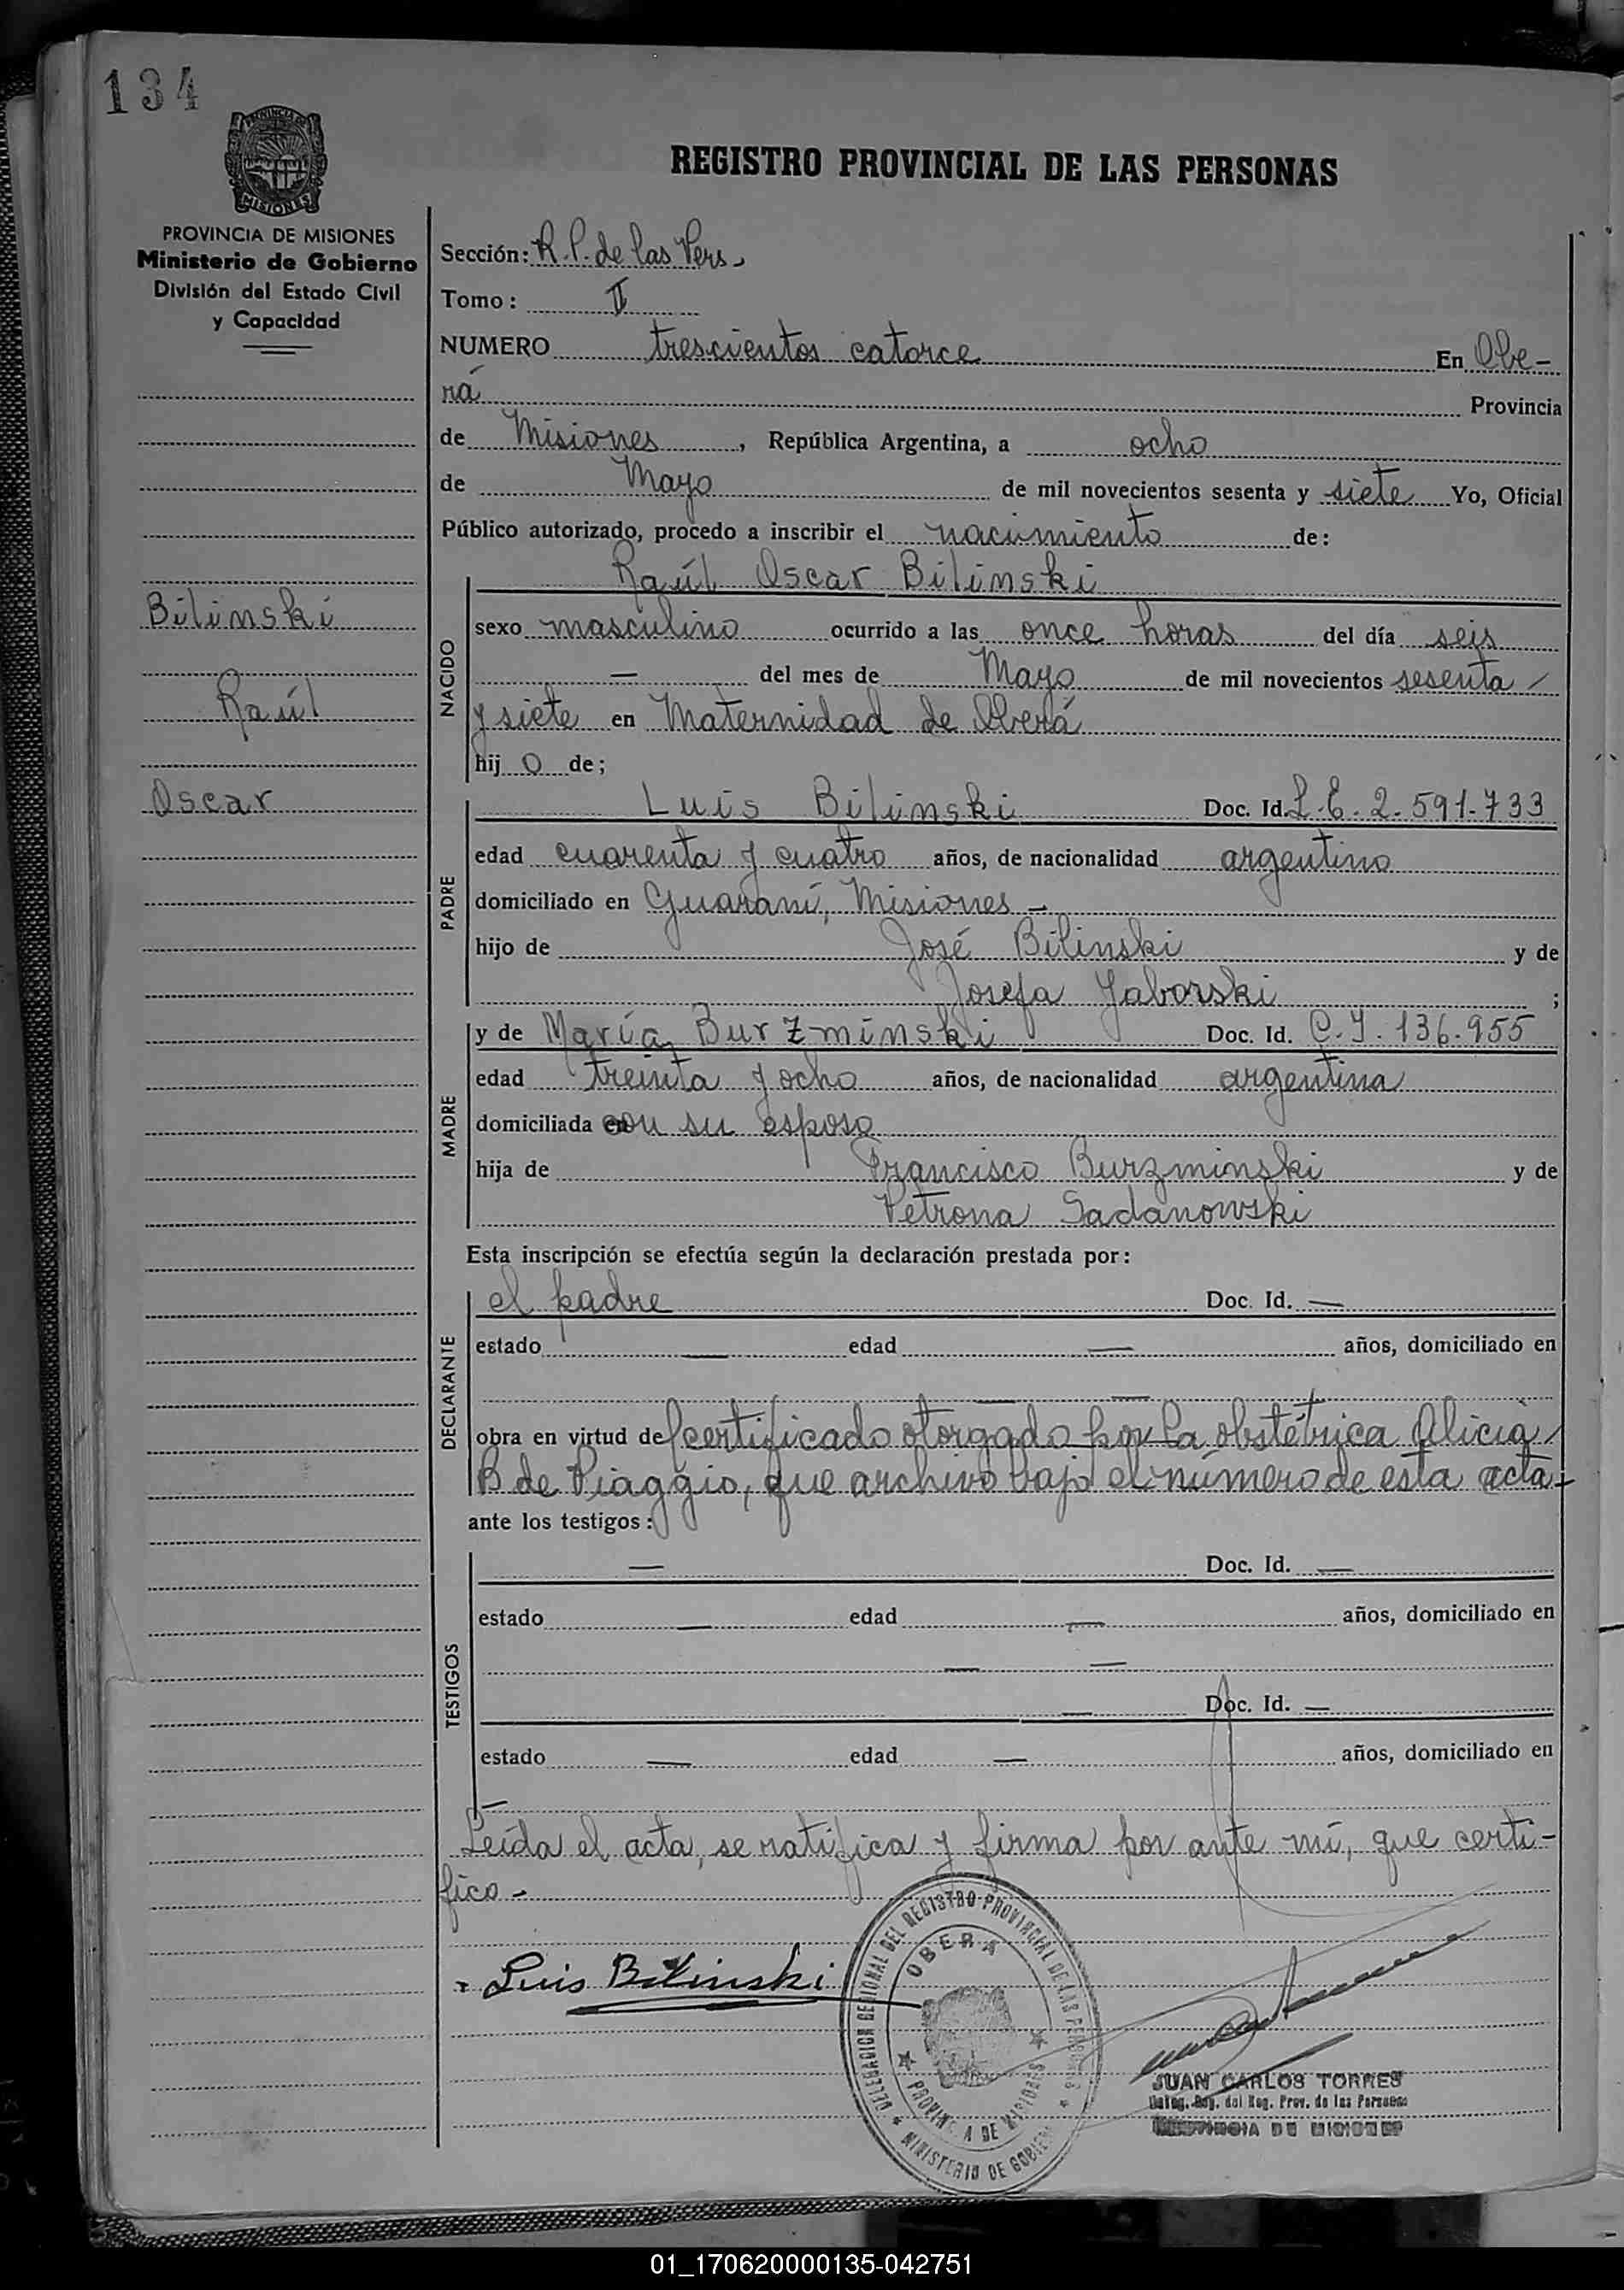 134
PROVINCIA DE
MISIONES
REGISTRO PROVINCIAL DE LAS PERSONAS
PROVINCIA DE MISIONES
Ministerio de Gobierno
División del Estado Civil
y Capacidad
Sección: R.P. de las Pers.
Tomo: II
NUMERO trescientos catorce En Obe-
rá Provincia
de Misiones, República Argentina, a ocho
de Mayo de mil novecientos sesenta y siete Yo, Oficial
Público autorizado, procedo a inscribir el nacimiento de:
Raúl Oscar Bilinski
Bilinski
Raúl
Oscar
NACIDO
sexo masculino ocurrido a las once horas del día seis
— del mes de Mayo de mil novecientos sesenta /
y siete en Maternidad de Oberá
hij o de;
PADRE
Luis Bilinski Doc. Id. L.E. 2.591.733
edad cuarenta y cuatro años, de nacionalidad argentino
domiciliado en Guaraní, Misiones –
hijo de José Bilinski y de
Josefa Jaborski ;
MADRE
y de María Burzminski Doc. Id. C.I. 136.955
edad treinta y ocho años, de nacionalidad argentina
domiciliada con su esposo
hija de Francisco Burzminski y de
Petrona Sadanowski
Esta inscripción se efectúa según la declaración prestada por:
DECLARANTE
el padre Doc. Id. —
estado — edad — años, domiciliado en
— —
obra en virtud de certificado otorgado por la obstétrica Alicia /
B de Piaggio, que archivo bajo el número de esta acta -
ante los testigos:
TESTIGOS
— Doc. Id. —
estado — edad — años, domiciliado en
— —
— Doc. Id. —
estado — edad — años, domiciliado en
—
Leída el acta, se ratifica y firma por ante mí, que certi-
fico -
Luis Bilinski
DELEGACION REGIONAL DEL REGISTRO PROVINCIAL DE LAS PERSONAS
OBERA
PROVINCIA DE MISIONES
MINISTERIO DE GOBIERNO
JUAN CARLOS TORRES
Deleg. Reg. del Reg. Prov. de las Personas
PROVINCIA DE MISIONES
01_170620000135-042751